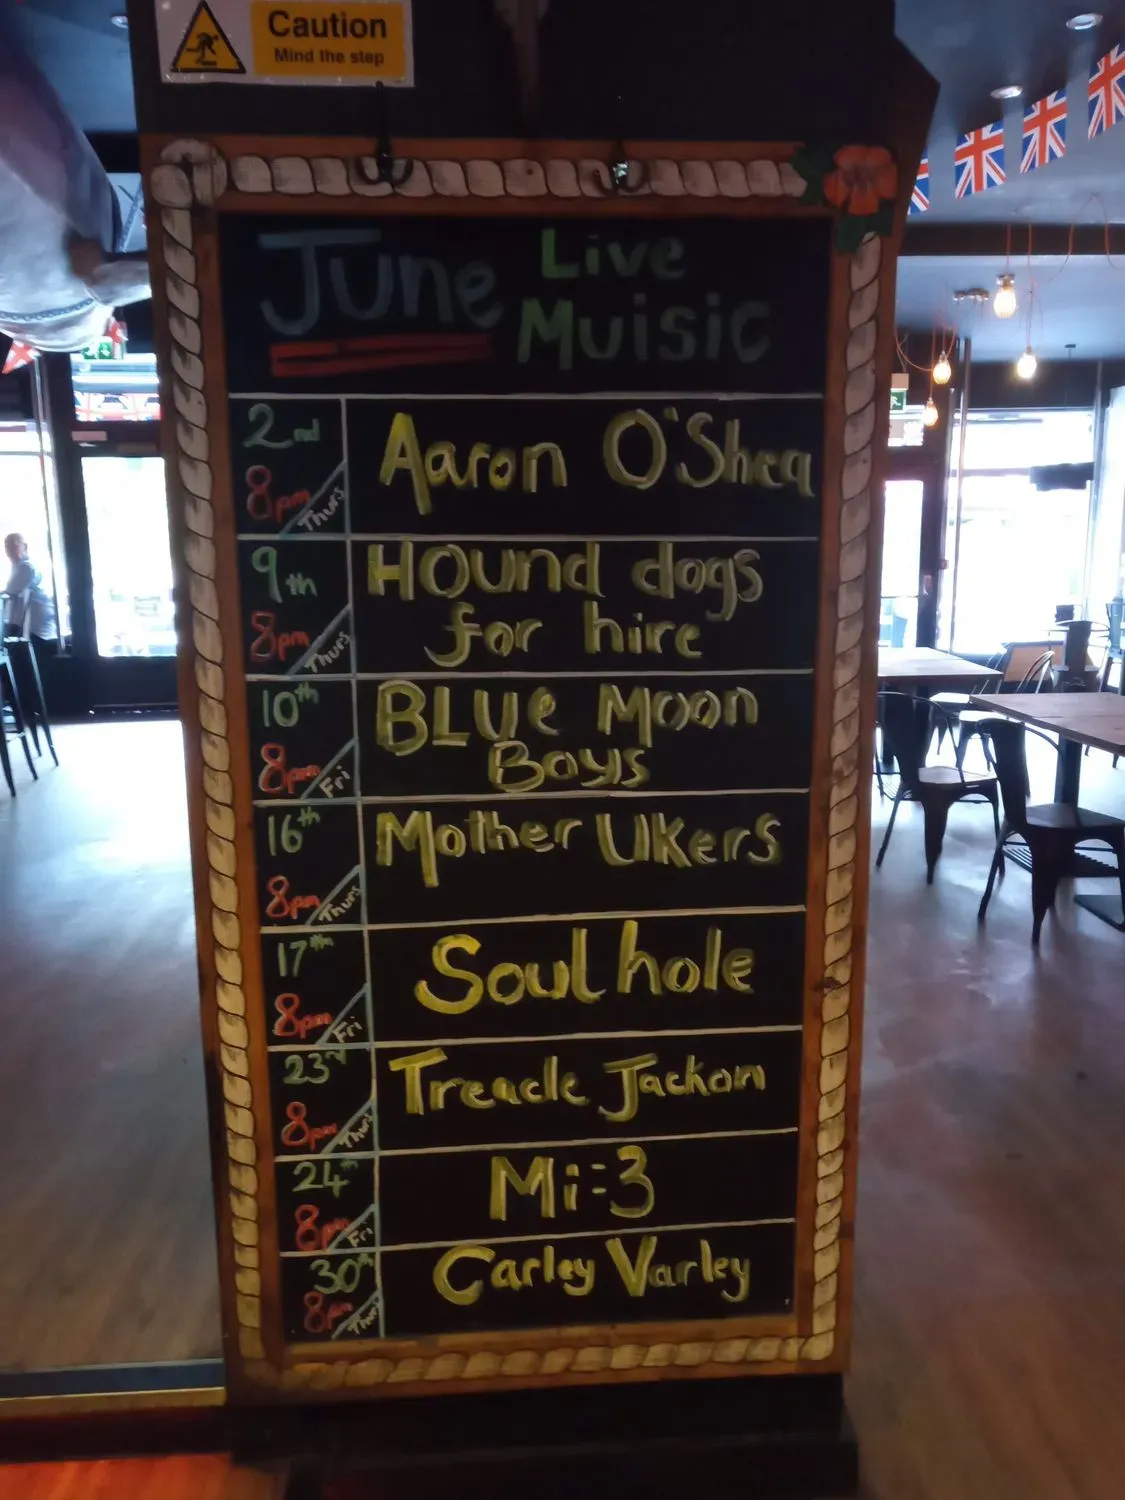 Caution
Mind the step
June Live
Muisic
2nd
8pm Thurs
Aaron O'Shea
9th
8pm Thurs
Hound dogs
for hire
10th
8pm Fri
BLUe Moon
Boys
16th
8pm Thurs
Mother UKers
17th
8pm Fri
Soul hole
23rd
8pm Thurs
Treacle Jackon
24th
8pm Fri
Mi-3
30th
8pm Thurs
Carley Varley